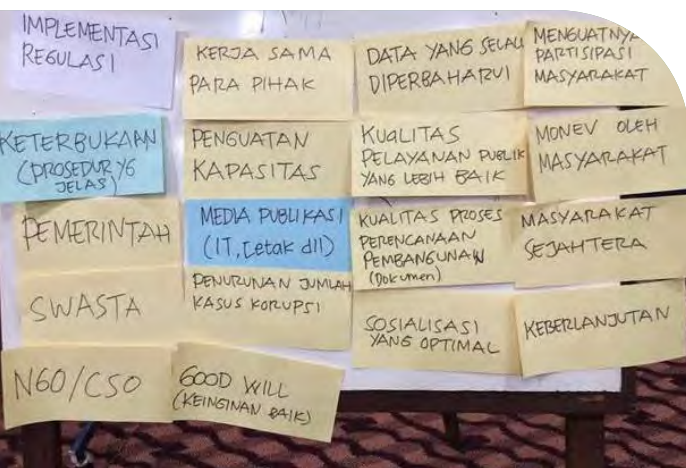 IMPLEMENTASI
REGULASI
KETERBUKAAN
(PROSEDUR YG
JELAS)
PEMERINTAH
SWASTA
NGO/CSO
KERJA SAMA
PARA PIHAK
PENGUATAN
KAPASITAS
MEDIA PUBLIKASI
(IT, Cetak dll)
PENURUNAN JUMLAH
KASUS KORUPSI
GOOD WILL
(KEINGINAN BAIK)
DATA YANG SELALU
DIPERBAHARUI
KUALITAS
PELAYANAN PUBLIK
YANG LEBIH BAIK
KUALITAS PROSES
PERENCANAAN
PEMBANGUNAN
(Dokumen)
SOSIALISASI
YANG OPTIMAL
MENGUATNYA
PARTISIPASI
MASYARAKAT
MONEV OLEH
MASYARAKAT
MASYARAKAT
SEJAHTERA
KEBERLANJUTAN